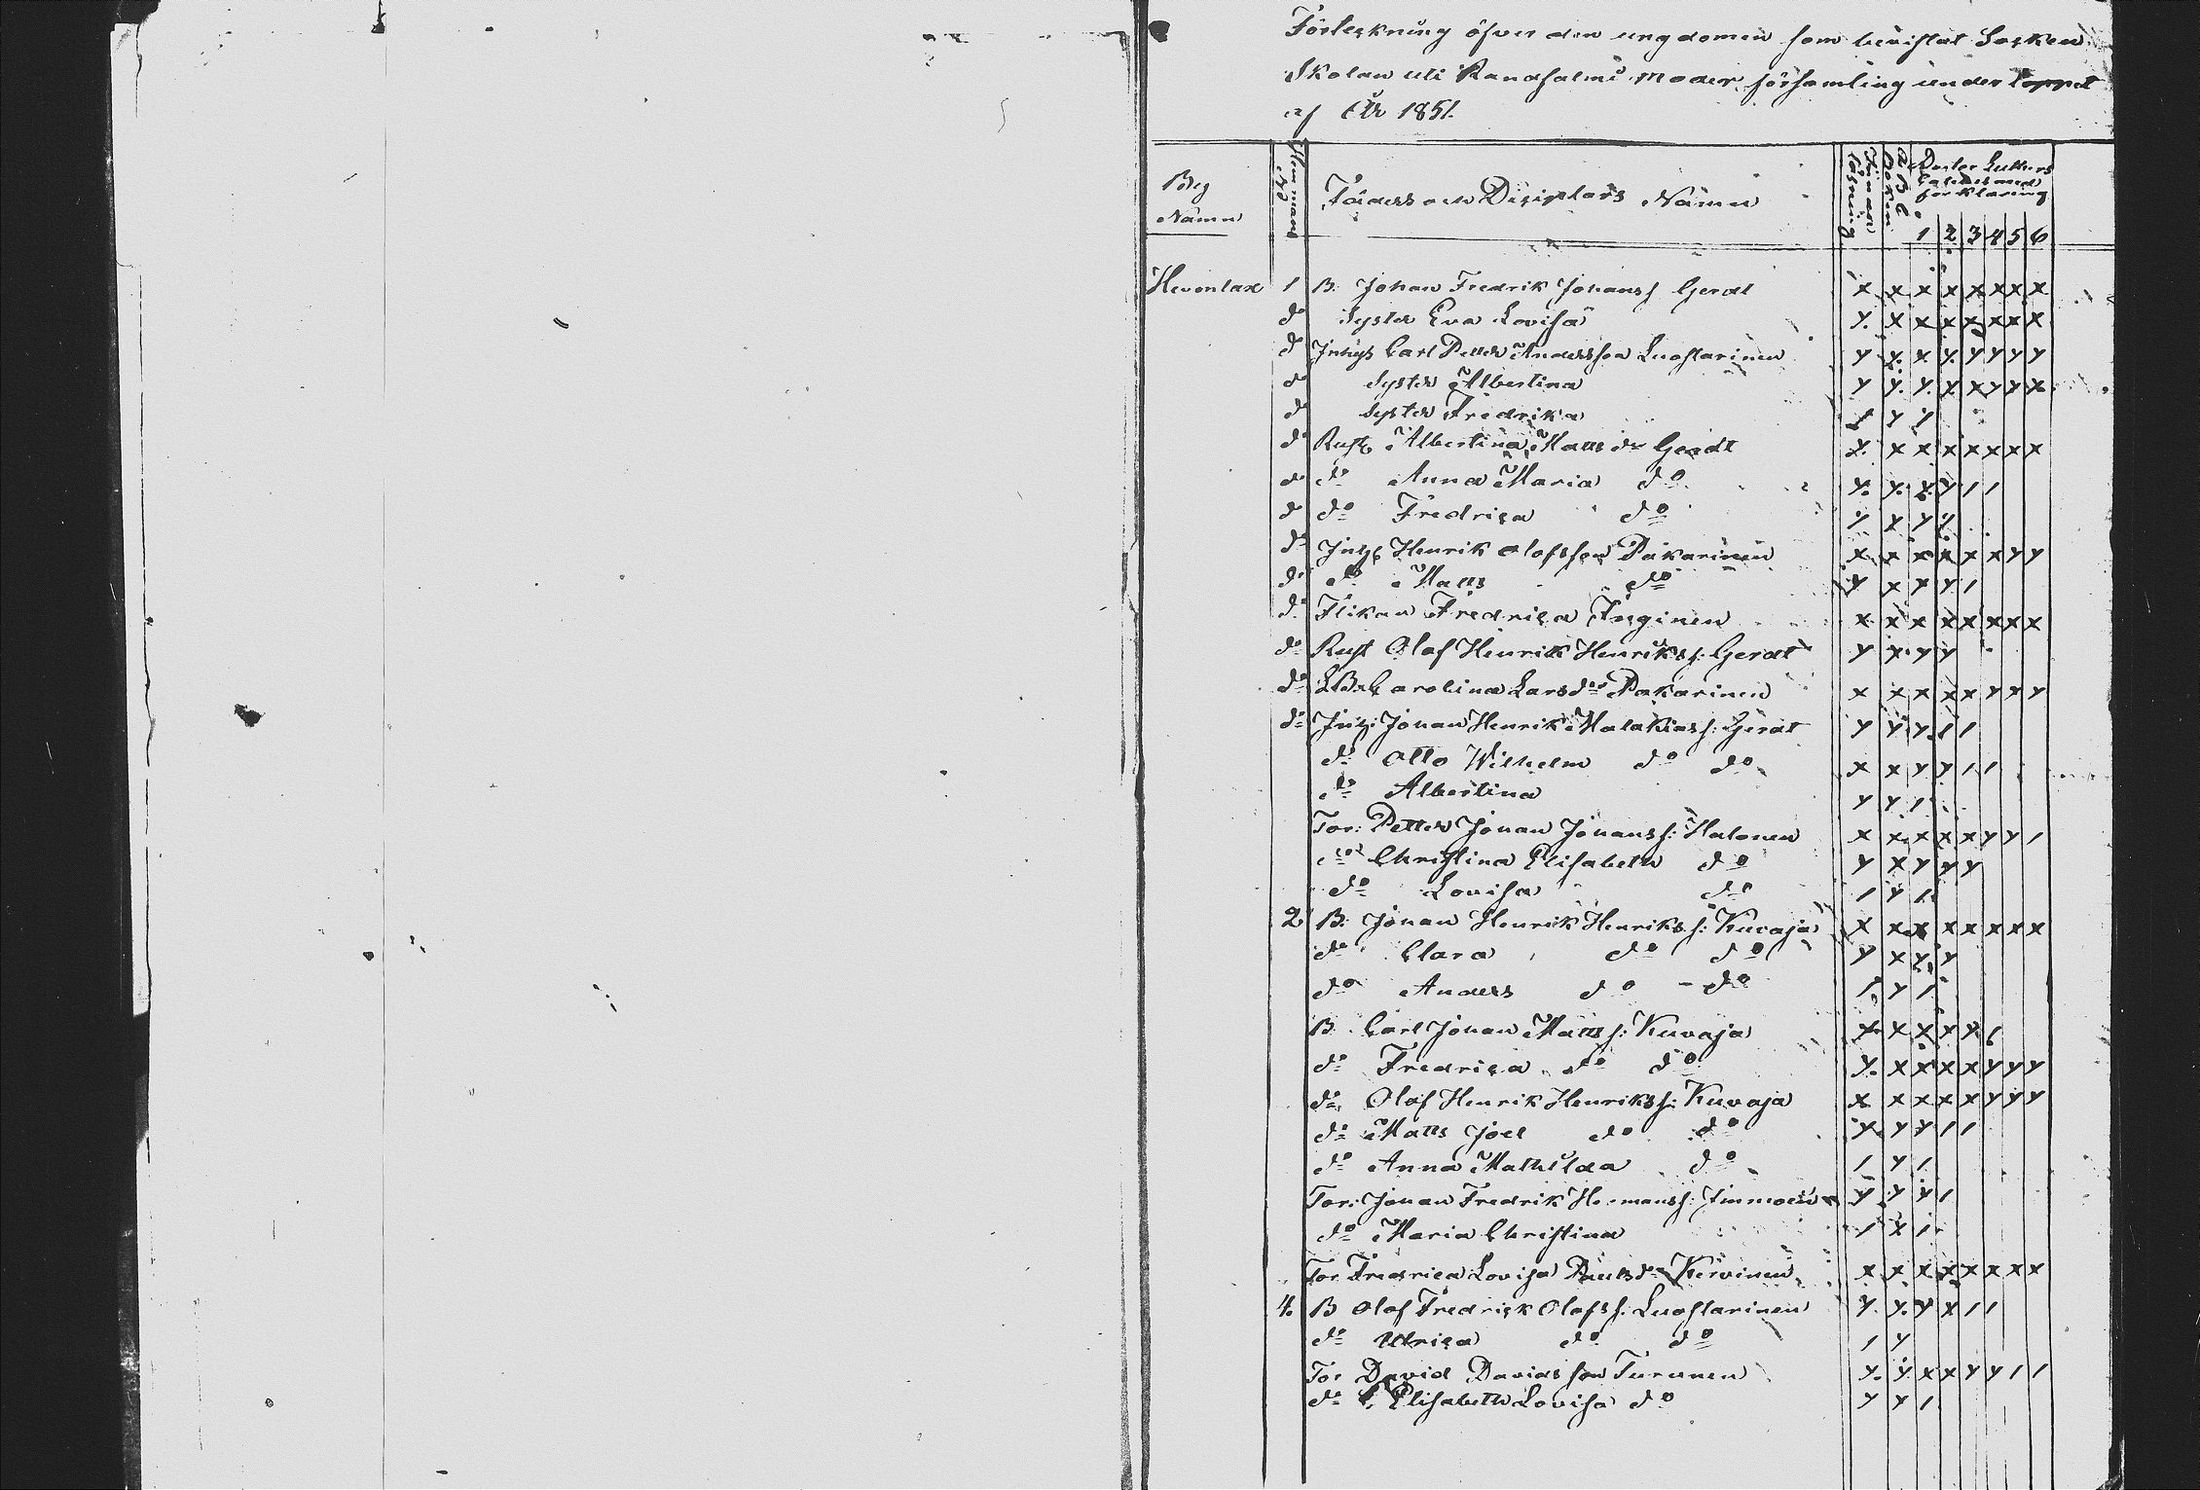 Förteckning öfver den ungdomen som bevistat Socken
Skolan uti Randsalmi Moder församling under loppet
af År 1851.
Byg Namn
Hemmans No
Fäders och Disciplars Namn
Innan läsning
A B C Boken
Doctor Luthers Cateches med förklaring
1 2 3 4 5 6
Hevonlax 1 B. Johan Fredrik Johanss Gerdt x x x x x x x x
do Syster Eva Lovisa y x x x x x x x
do Inhys Carl Petter Andersson Luostarinen y y y y y y y y
do Syster Albertina y y y x x y y x
do Syster Fredrika 1 y 1
do Rust Albertina Matts dr Gerdt y x x x x x x x
do do Anna Maria do y y y y 1 1
do do Fredrica do y x y y
do Inhs Henrik Olofsson Pakarinen x x x x x x y y
do do Matts do y x y y 1
do Flikan Fredrica Inginen x x x x x x x x
do Rust Olof Henrik Henrikss: Gerdt y y y y
do Carolina Larsdr Pakarinen x x x x x y x y
do Inhs: Johan Henrik Malakiass: Gerdt y y y 1 1
do Otto Wilhelm do do x x y y 1 1
do Albertina y y 1
Tor: Petter Johan Johanss: Halonen x x x x x y y 1
do Christina Elisabeth do y x y y y
do Lovisa do 1 y 1
2 B. Johan Henrik Henrikss: Kuvaja x x x x x x x x
do Clara do do y x y y
do Anders do - do 1 y 1
B. Carl Johan Matts s: Kuvaja x x x x y 1
do Fredrica do do y x x x x y y y
do Olof Henrik Henrikss: Kuvaja x x x x x y y y
do Matts Joel do do y y y 1 1
do Anna Mathilda do 1 y 1
Tor: Johan Fredrik Hermanss: Immoin y y y 1
do Maria Christina 1 x 1
Tor Fredrica Lovisa Paulsdr Kervinen x x x x x x x x
4. B Olof Fredrick Olofss. Luostarinen y y y x 1 1
do Ulrica do do 1 y
Tor David Davidsson Turunen y y x x y y 1 1
do Elisabeth Lovisa do y y 1